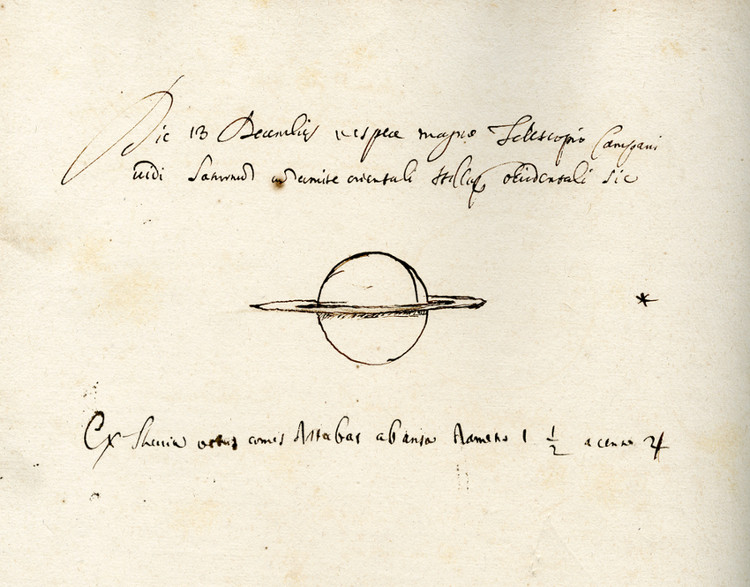 Die 13 Decembris vespere magno Telescopio Campani
vidi Saturnum comite orientali occidentali sic
Ex comes distabat ab ansa diametro 1 1/2 a centro ♃